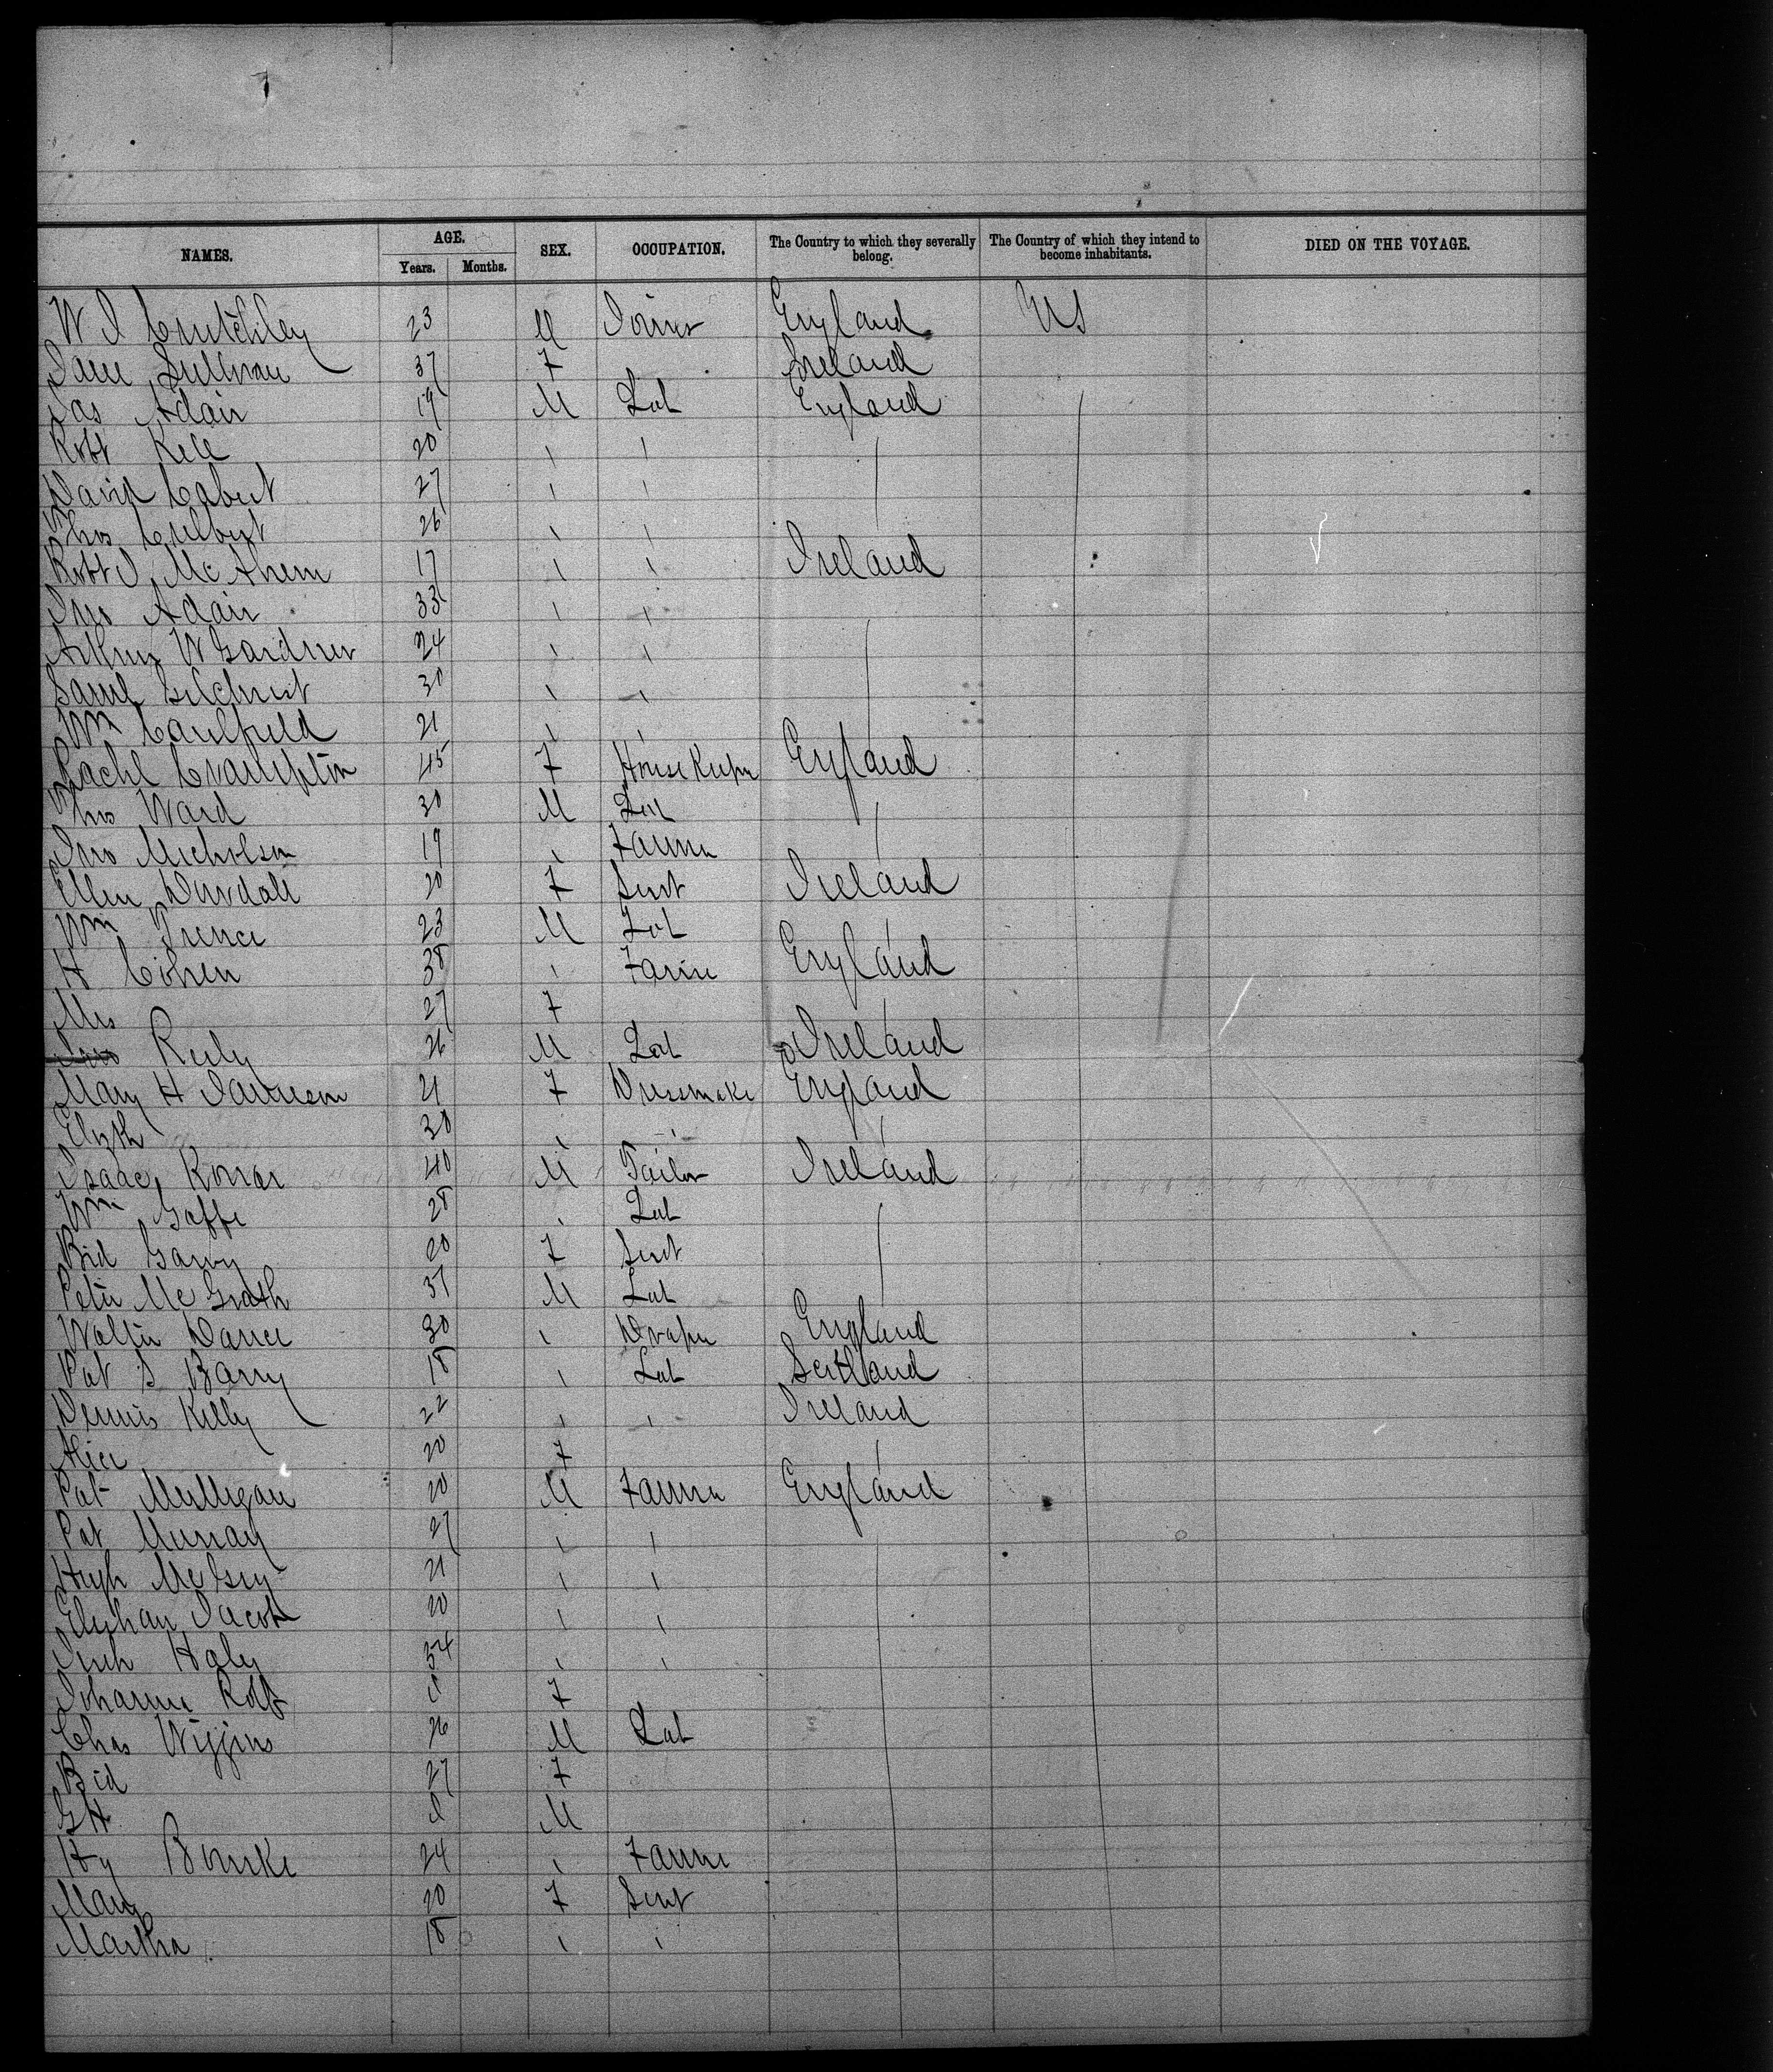 NAMES. AGE. Years. Months. SEX. OCCUPATION. The Country to which they severally belong. The Country of which they intend to become inhabitants. DIED ON THE VOYAGE.
W J Crutchley 23 M Joiner England US
Jane Sullivan 37 F Ireland
Jas Adair 19 M Lab England
Robt Kell 20 " "
David Cabert 27 " "
Thos Culbert 26 " "
Robt J Mc 17 " " Ireland
Jno Adair 33 " "
Arthur W Gardner 24 " "
Saml Gilchrist 30 " "
Wm Caulfield 21 " "
Rachl Crampton 45 F House Keeper England
Thos Ward 30 M Lab
Jno Nicholson 19 " Farmer
Ellen 20 F Servt Ireland
Wm 23 M Lab
H Cohen 38 " Farmr England
Mrs 27 F
Jno Riely 26 M Lab Ireland
Mary H Jamieson 21 F Dressmake England
Elizth 30 " "
Isaac 40 M Tailor Ireland
Wm Gaffe 28 " Lab
Bid Garvy 20 F Servt
Peter Mc Grath 37 M Lab
Walter Dance 30 " Draper England
Pat S Barry 18 " Lab Scotland
Dennis Kelly 22 " " Ireland
Alice 20 F
Pat Mulligan 20 M Farmer England
Pat Murray 27 " "
Hugh 21 " "
Jacob 20 " "
Haley 34 " "
Johanne 11 F
Chas Wiggins 26 M Lab
Bid 27 F
G H M
Hy Bourke 24 " Farmr
Mary 20 F Servt
Martha 18 " "